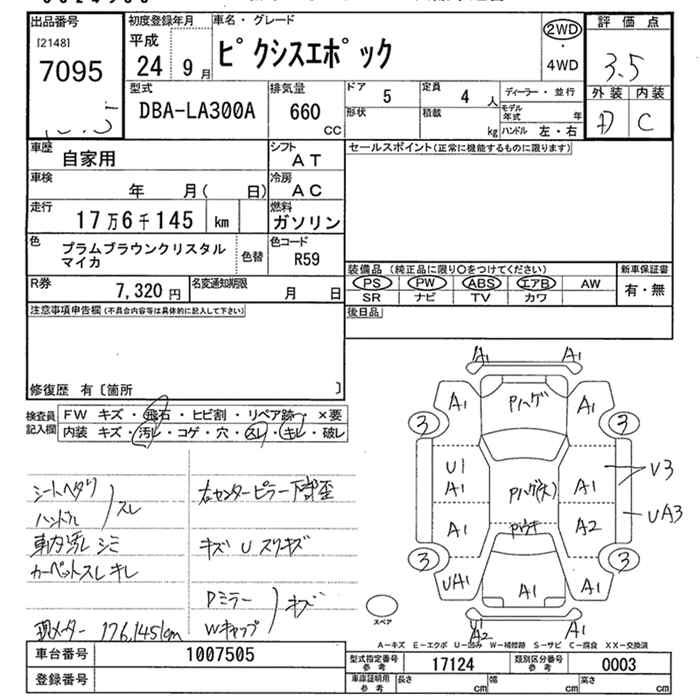 出品番号
[2148]
7095
初度登録年月
平成
24 9月
車名・グレード
ピクシスエポック
2WD
・
4WD
評価点
3.5
外装 内装
D C
型式
DBA-LA300A
排気量
660
CC
ドア
5
定員
4 人
形状
積載
kg
ディーラー・並行
モデル年式 年
ハンドル 左・右
車歴
自家用
シフト
AT
車検
年 月( 日)
冷房
AC
走行
17万6千145 km
燃料
ガソリン
色
プラムブラウンクリスタル
マイカ
色替
色コード
R59
R券
7,320 円
名変通知期限
月 日
セールスポイント(正常に機能するものに限ります)
装備品 (純正品に限り○をつけてください)
新車保証書
PS PW ABS エアB AW
有・無
SR ナビ TV カワ
後日品
注意事項申告欄(不具合内容等は具体的に記入して下さい)
修復歴 有〔箇所 〕
検査員
記入欄
FW キズ・飛石・ヒビ割・リペア跡・×要
内装 キズ・汚レ・コゲ・穴・スレ・キレ・破レ
シートヘタリ
ハンドル
スレ
車内汚レ シミ
カーペットスレ キレ
現メーター 176,145km
右センターピラー下部歪
キズ U スリキズ
Dミラー
Wキャップ
キズ
A1 A1
A1 Pハゲ A1
3 3
U1
A1 Pハゲ(大) A1
V3
UA3
A1 Pウキ A2
3 3
UA1 A1 A1
A2 A1
スペア
A-キズ E-エクボ U-凹み W-補修跡 S-サビ C-腐食 XX-交換済
車台番号
1007505
登録番号
型式指定番号
参考
17124
類別区分番号
参考
0003
車庫証明用
参考
長さ cm
幅 cm
高さ cm